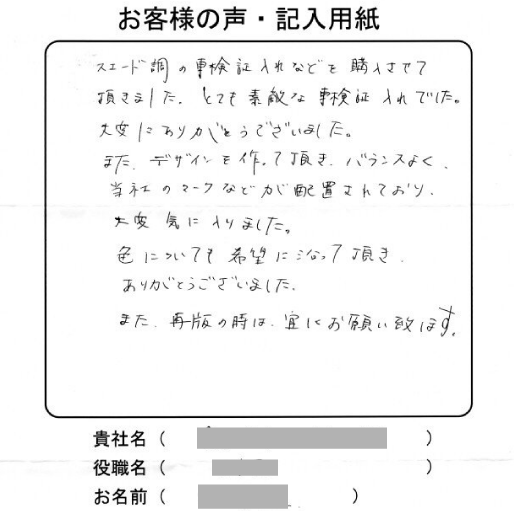 お客様の声・記入用紙
スエード調の車検証入れなどを購入させて
頂きました。とても素敵な車検証入れでした。
大変にありがとうございました。
また、デザインを作って頂き、バランスよく、
当社のマークなどが配置されており、
大変気に入りました。
色についても希望になって頂き、
ありがとうございました。
また、再版の時は、宜しくお願い致します。
貴社名（　）
役職名（　）
お名前（　）